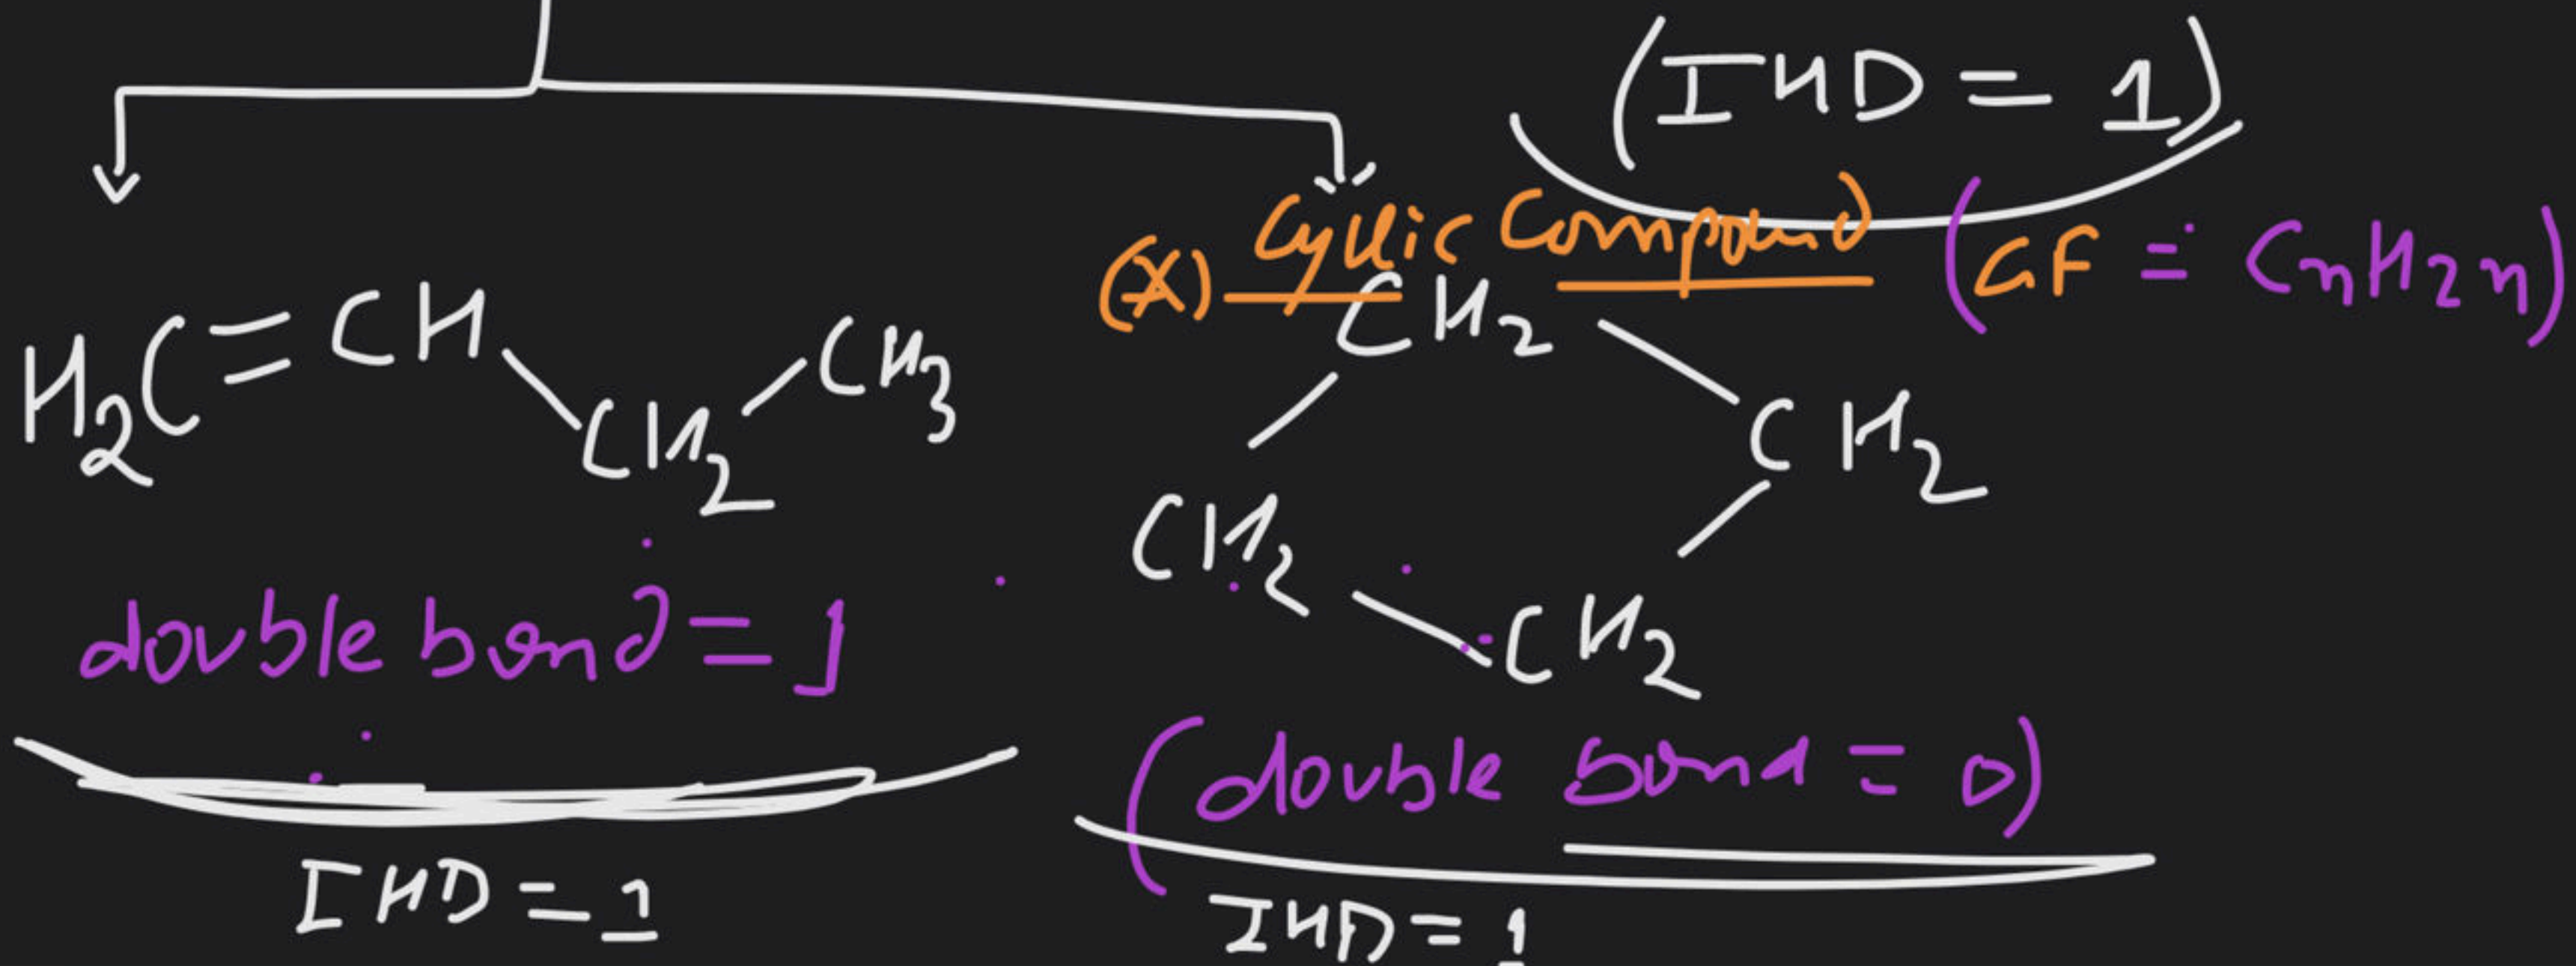 (IHD = 1)
(X) Cyclic Compound (GF = CnH2n)
H2C=CH CH2 CH3
CH2
CH2
CH2
CH2
double bond = 1
(double bond = 0)
IHD = 1
IHD = 1